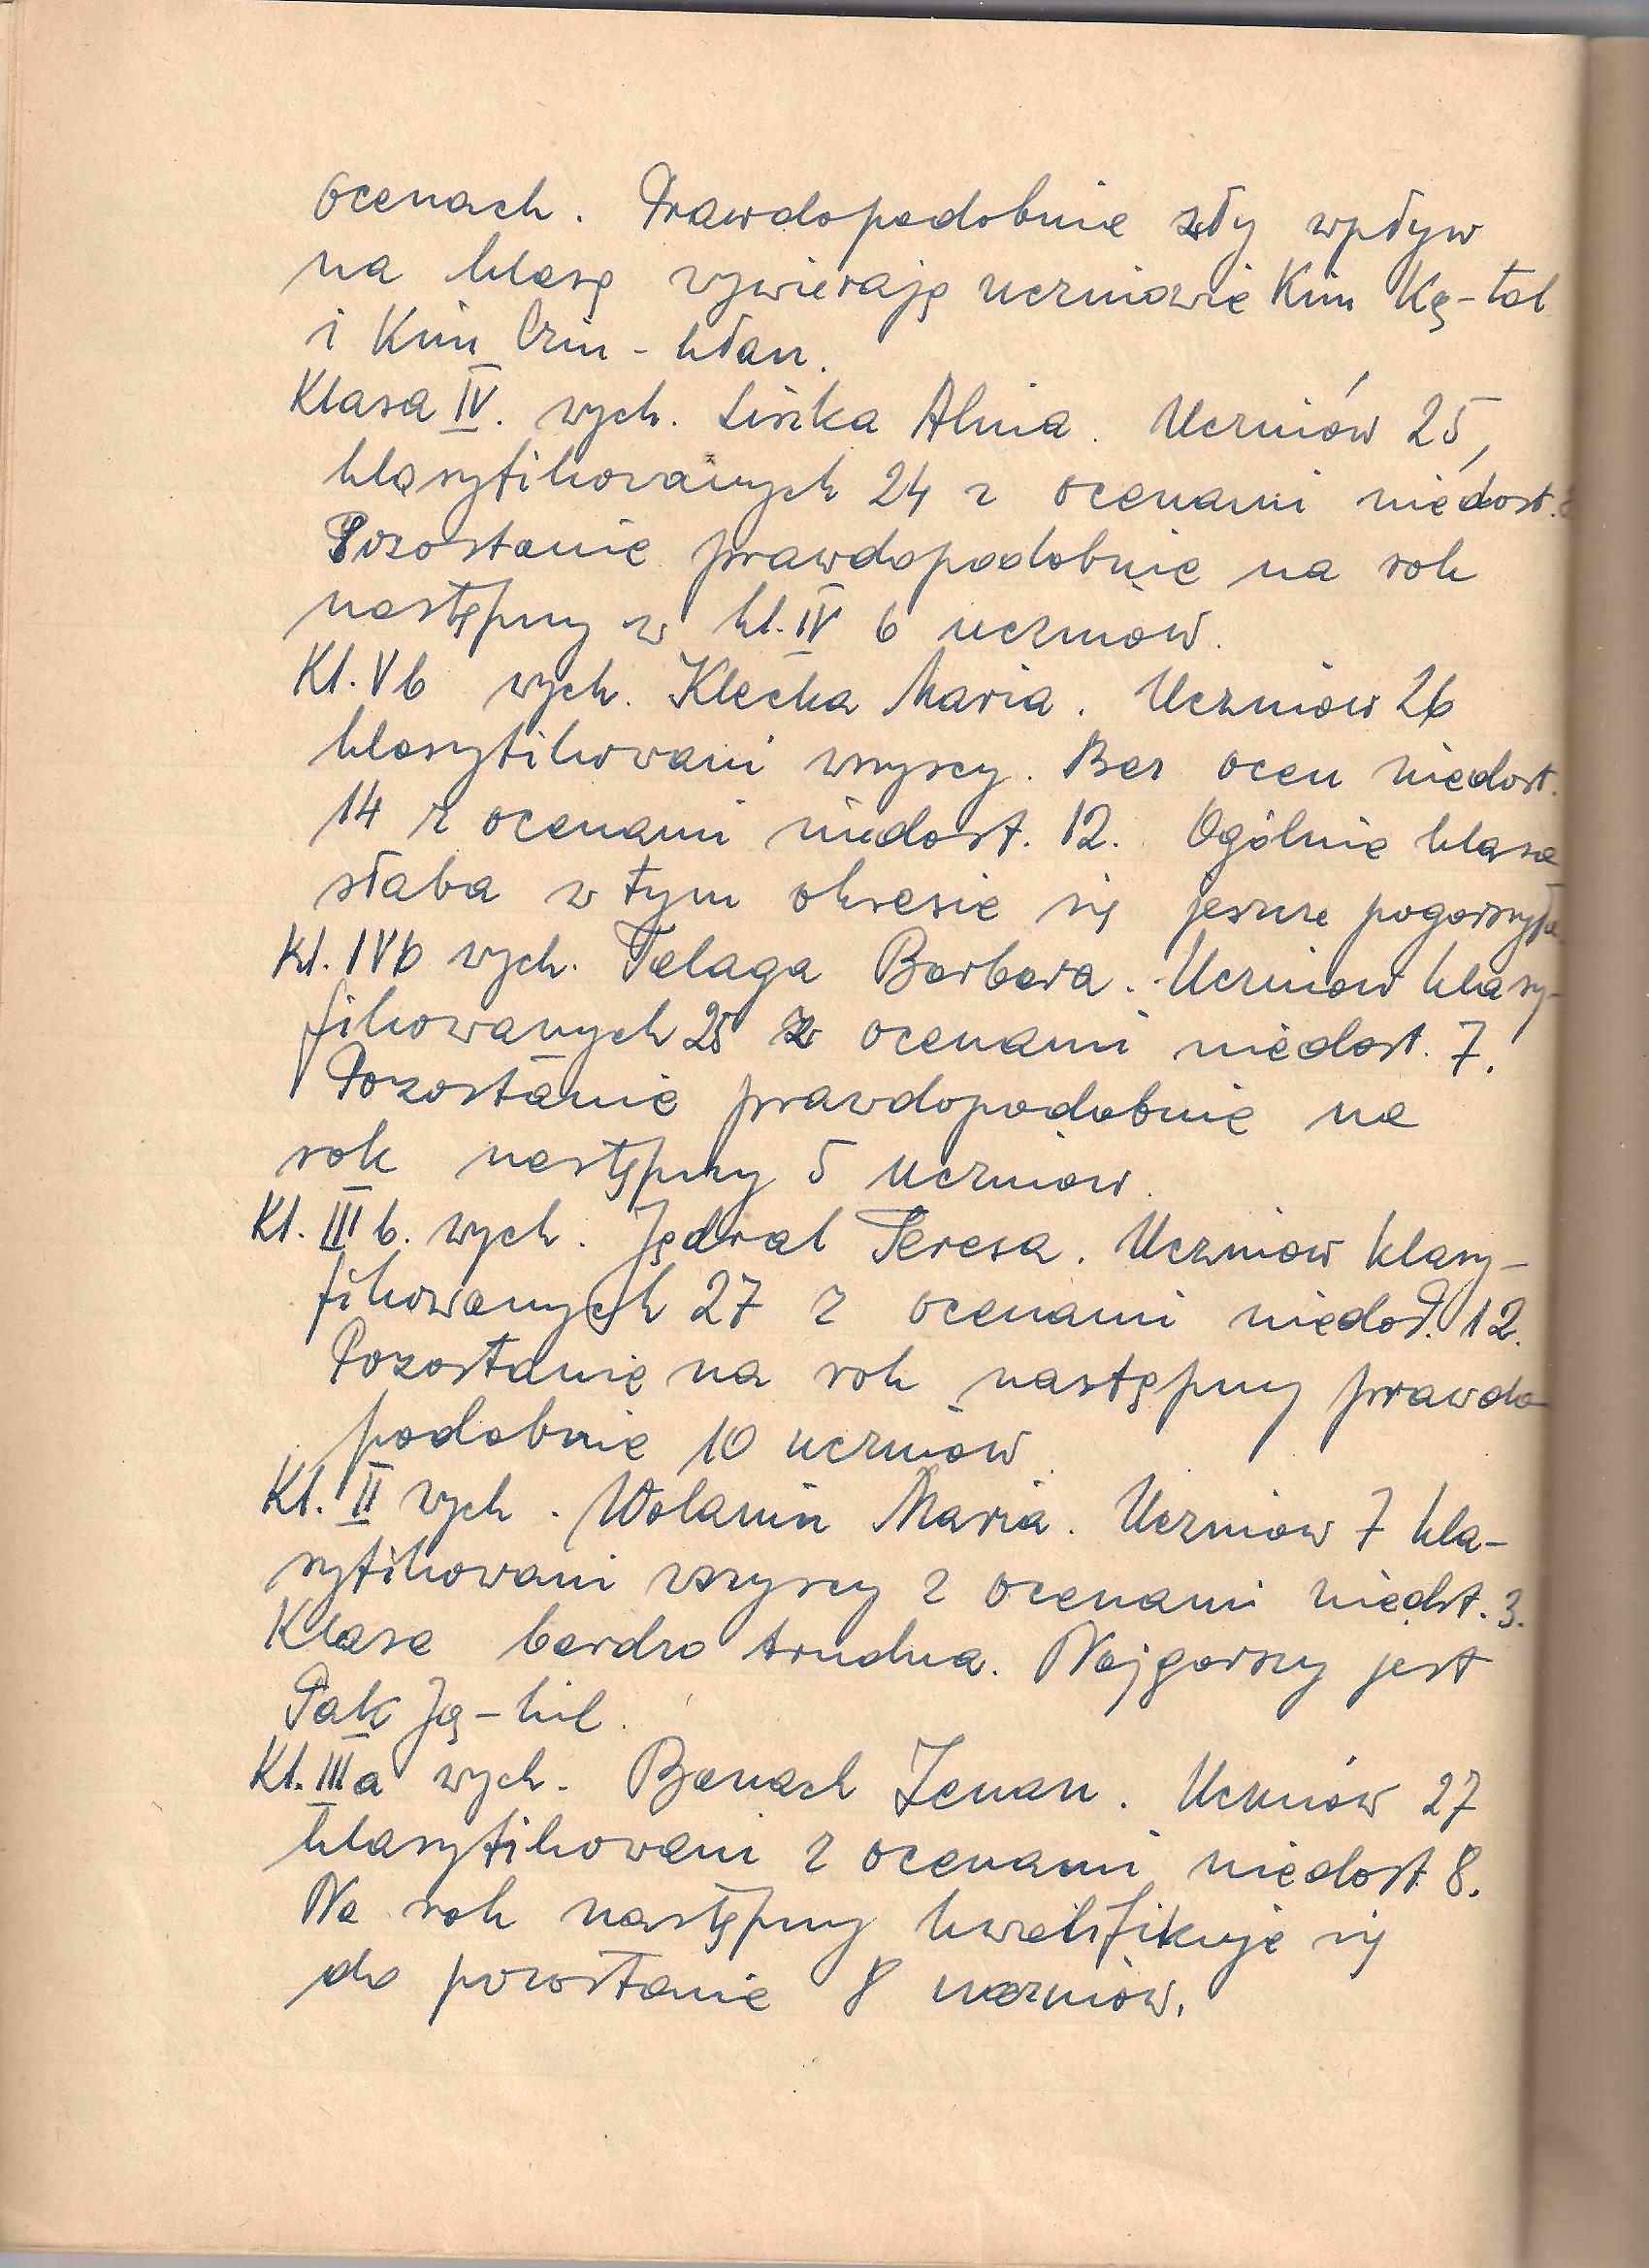 ocenach. Prawdopodobnie zły wpływ
na klasę wywierają uczniowie Kim Kę-tol
i Kim Czin-hłan.
Klasa IV. wych. Liszka Alina. Uczniów 25,
klasyfikowanych 24 z ocenami niedost.
Pozostanie prawdopodobnie na rok
następny w kl. IV 6 uczniów.
Kl. Vb wych. Klecha Maria. Uczniow 26
klasyfikowani wszyscy. Bez ocen niedost.
14 z ocenami niedost. 12. Ogólnie klasa
słaba w tym okresie się jeszcze pogorszyła
Kl. IVb wych. Talaga Barbara. Uczniow klasy-
fikowanych 25 z ocenami niedost. 7.
Pozostanie prawdopodobnie na
rok następny 5 uczniow.
Kl. III b. wych. Jędral Teresa. Uczniow klasy-
fikowanych 27 z ocenami niedost. 12.
Pozostanie na rok następny prawdo-
podobnie 10 uczniów.
Kl. II wych. Wolanin Maria. Uczniow 7 kla-
syfikowani wszyscy z ocenami niedst. 3.
Klasa bardzo trudna. Najgorszy jest
Pak Ją-hil.
Kl. IIIa wych. Banach Zenon. Uczniów 27
klasyfikowani z ocenami niedost 8.
Na rok następny kwalifikuje się
do pozostanie 8 uczniów.